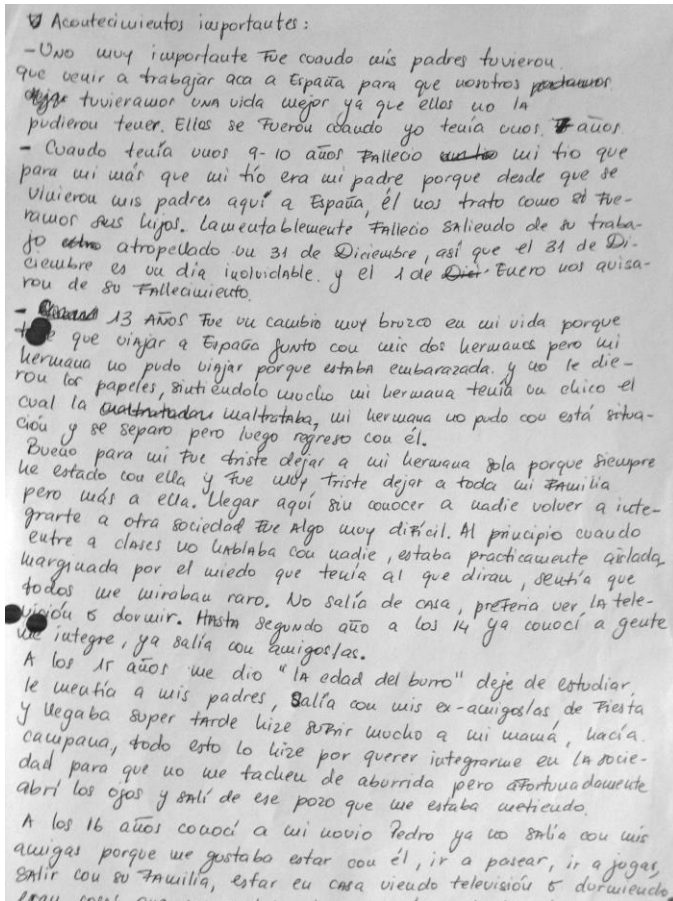 Acontecimientos importantes:
- UNO muy importante Fue cuando mis padres tuvieron
que venir a trabajar aca a España para que nosotros
tuvieramos UNA vida mejor ya que ellos no lA
pudieron tener. Ellos se Fuerón cuando yo tenía unos 7 años
- Cuando tenía unos 9-10 años Fallecio mi tio que
para mi más que mi tío era mi padre porque desde que se
vinieron mis padres aquí a España, él nos trato como si Fue-
ramos sus hijos. Lamentablemente Fallecio saliendo de su traba-
jo atropellado un 31 de Diciembre, así que el 31 de Di-
ciembre es un día inolvidable. y el 1 de Enero nos avisa-
rou de su Fallecimiento.
- 13 AÑOS Fue un cambio muy bruzco en mi vida porque
que viajar a España junto con mis dos hermanos pero mi
hermana no pudo viajar porque estaba embarazada. y no le die-
rou los papeles, sintiéndolo mucho mi hermana tenía un chico el
cual la maltrataba, mi hermana no pudo con está situa-
ción y se separo pero luego regreso con él.
Bueno para mi Fue triste dejar a mi hermana sola porque siempre
he estado con ella y Fue muy triste dejar a toda mi Familia
pero más a ella. Llegar aquí sin conocer a nadie volver a inte-
grarte a otra sociedad Fue Algo muy diFícil. Al principio cuando
entre a clAses no hAblaba con nadie, estaba practicamente aislada,
marginada por el miedo que tenía al que diran, sentía que
todos me miraban raro. No salía de cAsa, preFeria ver lA tele-
visión o dormir. HAsta segundo año a los 14 ya conocí a gente
me integre, ya salía con amigos/as.
A los 15 años me dio "lA edad del burro" deje de estudiar,
le mentía a mis padres, Salía con mis ex-amigos/as de Fiesta
y llegaba super tArde hize suFrir mucho a mi mamá, hacía
campana, todo esto lo hize por querer integrarme en lA socie-
dad para que no me tachen de aburrida pero aFortunadamente
abrí los ojos y sAlí de ese pozo que me estaba metiendo.
A los 16 años conocí a mi novio Pedro ya no sAlía con mis
amigas porque me gustaba estar con él, ir a pasear, ir a jogar,
sAlir con su FAmilia, estar en cAsa viendo televisión o durmiendo